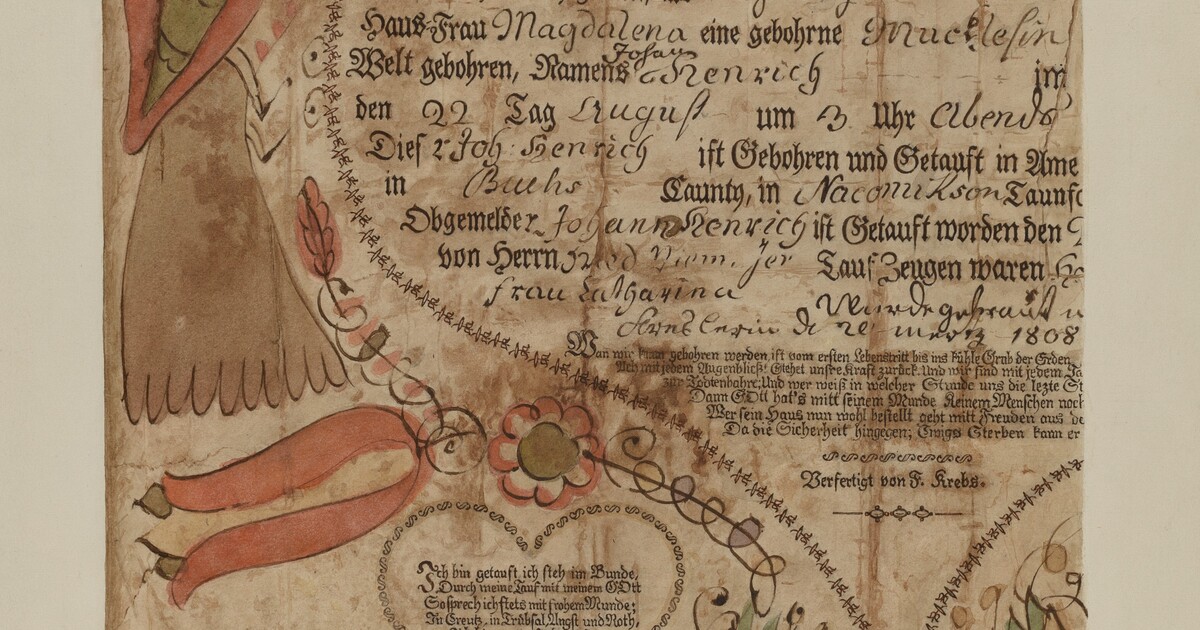 Haus-Frau Magdalena eine gebohrne Mucklesin
Welt gebohren, Namens Johan Henrich im
den 22 Tag August um 3 Uhr Abends
Dieser Joh: Henrich ist Gebohren und Getauft in Ame
in Buchs Caunty, in Nacomikson Taunsc
Obgemelder Johann Henrich ist Getauft worden den
von Herrn Tauf Zeugen waren
frau Catharina
Wurde getrauft
mertz 1808
Wan wir kaum gebohren werden, ist vom ersten Lebenstritt bis ins kühle Grab der Erden
Ach mit jedem Augenblick! Gehet unsre Kraft zurück. Und wir sind mit jedem Ja
zur Todtenbahre; Und wer weiß in welcher Stunde uns die lezte St
Dann GOtt hat's mitt seinem Munde Keinem Menschen noch
Wer sein Haus nun wohl bestellt geht mitt Freuden aus de
Da die Sicherheit hingegen; Ewigs Sterben kann er
Verfertigt von F. Krebs.
Ich bin getauft, ich steh im Bunde,
Durch meine Tauf mit meinem GOtt
So sprech ich stets mit frohem Munde;
In Creutz, in Trübsal, Angst und Noth,